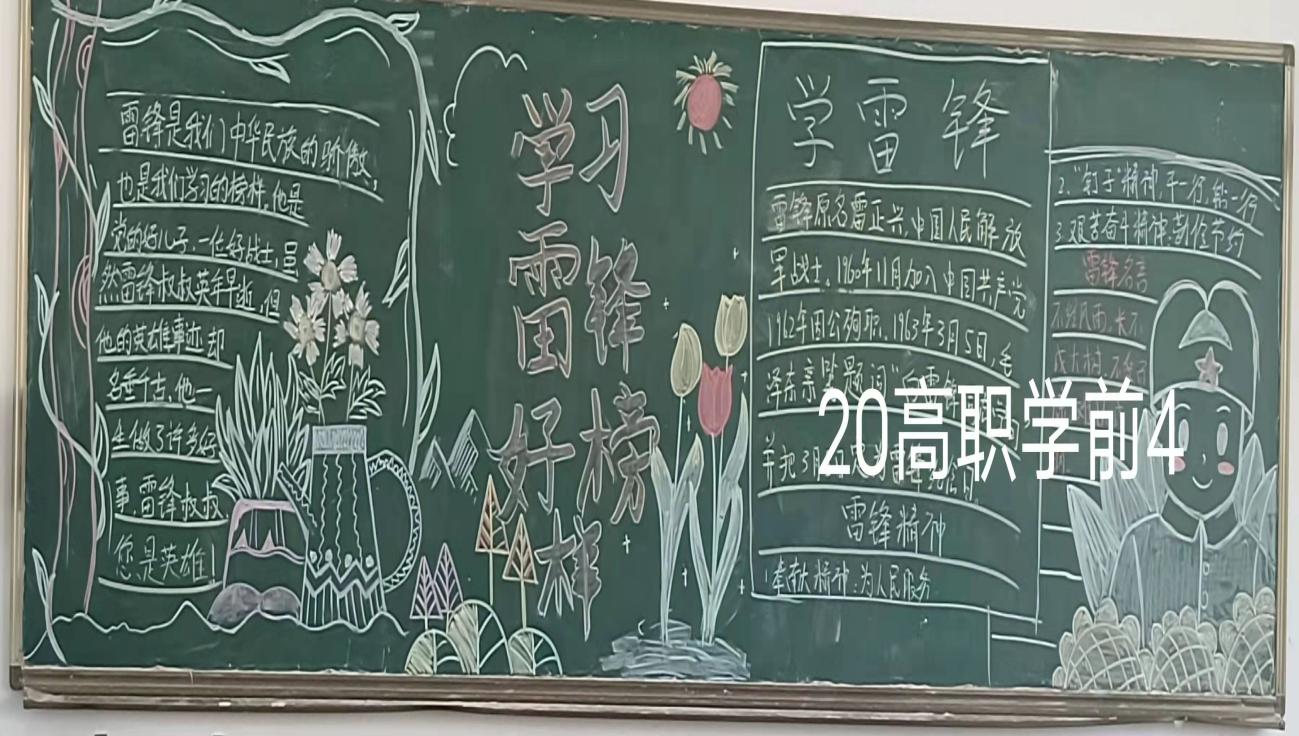 雷锋是我们中华民族的骄傲,
也是我们学习的榜样,他是
党的好儿子,一位好战士,虽
然雷锋叔叔英年早逝,但
他的英雄事迹却
名垂千古,他一
生做了许多好
事,雷锋叔叔,
您是英雄!
学习
雷锋
好榜
样
学雷锋
雷锋原名雷正兴,中国人民解放
军战士,1960年11月加入中国共产党
1962年因公殉职,1963年3月5日,毛
泽东亲笔题词"
并把3月
雷锋精神
1.奉献精神:为人民服务
2."钉子"精神,干一行,
3.艰苦奋斗精神:勤俭节约
雷锋名言
不经风雨,长不
成大树,不
20高职学前4